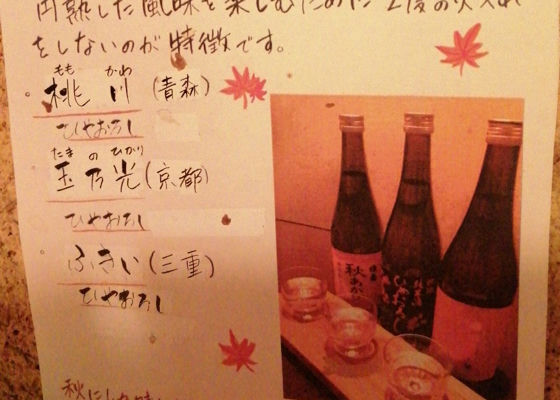 円熟した風味を楽しむために2度の火入れ
をしないのが特徴です。
もも かわ
桃川(青森)
ひやおろし
たま の ひかり
玉乃光(京都)
ひやおろし
(三重)
ひやおろし
秋
秋あがり
ひやおろし